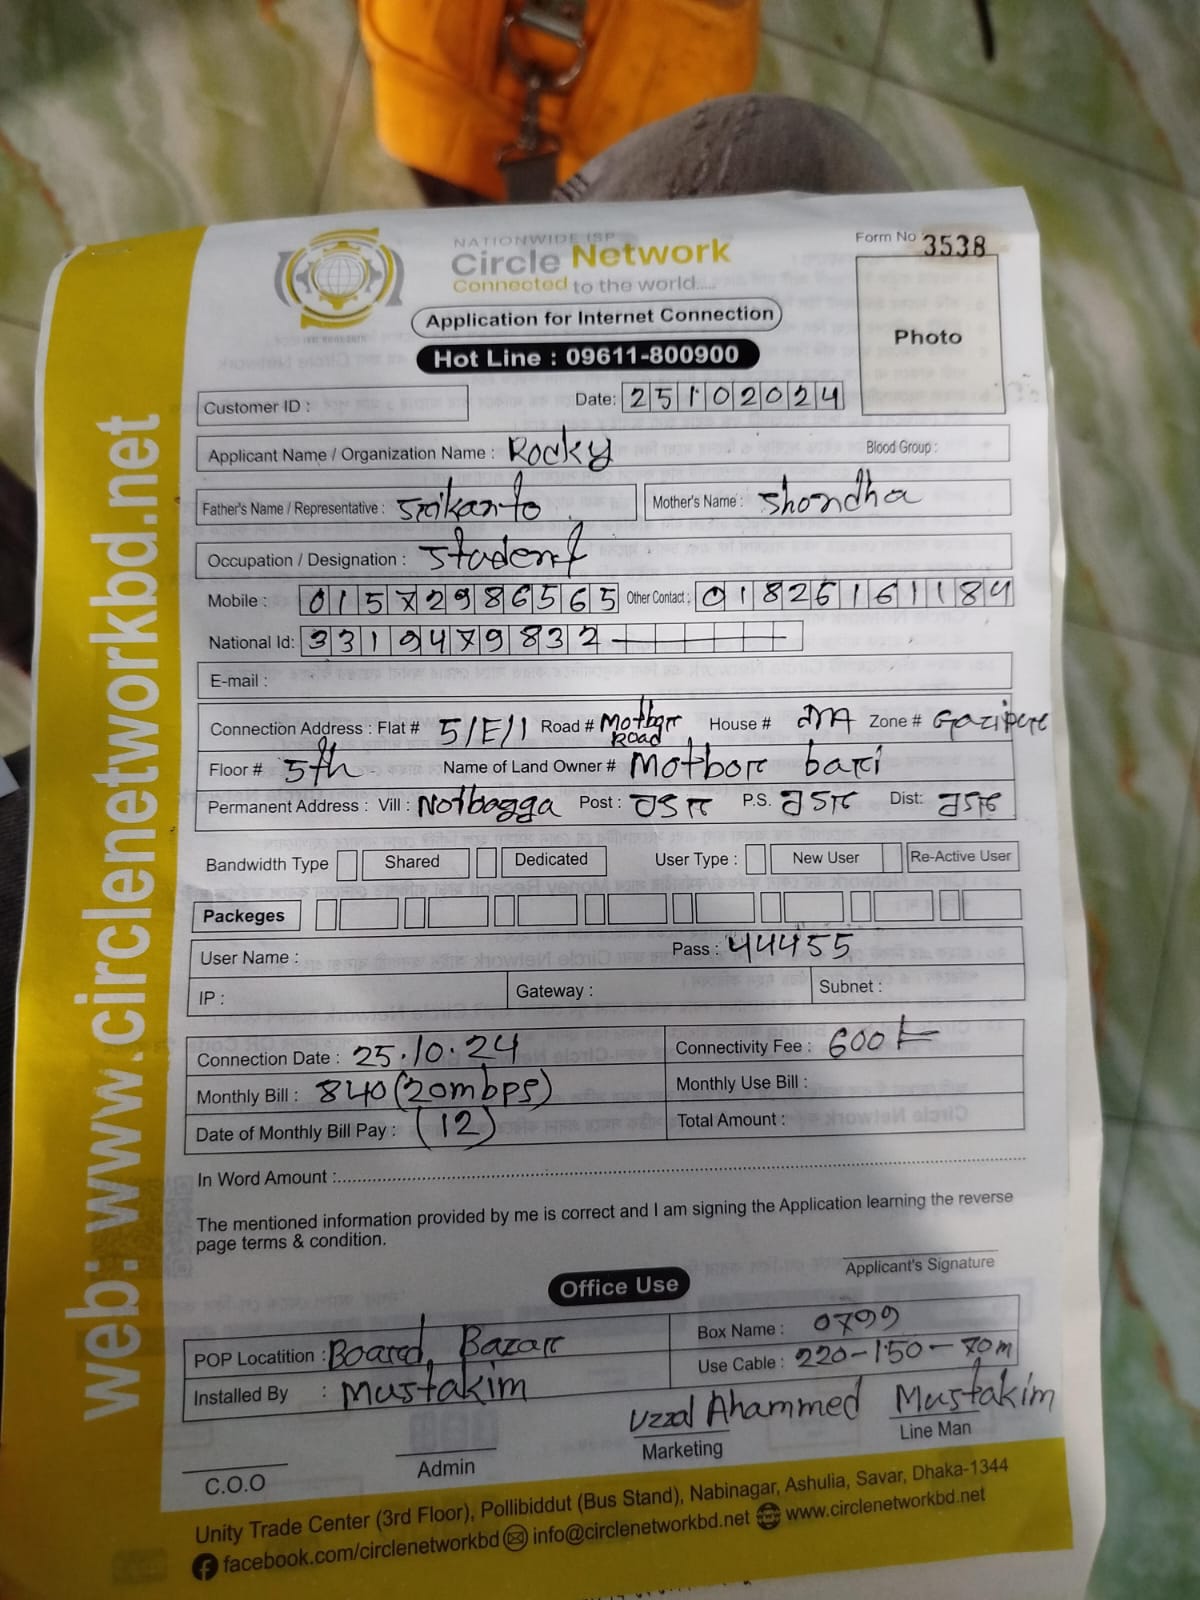 NATIONWIDE ISP
Circle Network
Connected to the world.....
Form No 3538
Application for Internet Connection
Hot Line : 09611-800900
Photo
Customer ID :
Date: 25102024
Applicant Name / Organization Name : Rocky Blood Group :
Father's Name / Representative : Srikanto Mother's Name : Shondha
Occupation / Designation : Student
Mobile : 01572986565 Other Contact : 01826161184
National Id: 3319479832
E-mail :
Connection Address : Flat # 5/E/1 Road # Motbor Road House # Zone # Gazipur
Floor # 5th Name of Land Owner # Motbor bari
Permanent Address : Vill : Notbagga Post : P.S. Dist:
Bandwidth Type Shared Dedicated User Type : New User Re-Active User
Packeges
User Name : Pass : 44455
IP : Gateway : Subnet :
Connection Date : 25.10.24 Connectivity Fee : 600
Monthly Bill : 840 (20mbps) Monthly Use Bill :
Date of Monthly Bill Pay : (12) Total Amount :
In Word Amount :
The mentioned information provided by me is correct and I am signing the Application learning the reverse
page terms & condition.
Applicant's Signature
Office Use
POP Locatition : Board Bazar Box Name : 0799
Installed By : Mustakim Use Cable : 220-150-70m
Uzzal Ahammed Mustakim
C.O.O Admin Marketing Line Man
Unity Trade Center (3rd Floor), Pollibiddut (Bus Stand), Nabinagar, Ashulia, Savar, Dhaka-1344
facebook.com/circlenetworkbd info@circlenetworkbd.net www.circlenetworkbd.net
web: www.circlenetworkbd.net